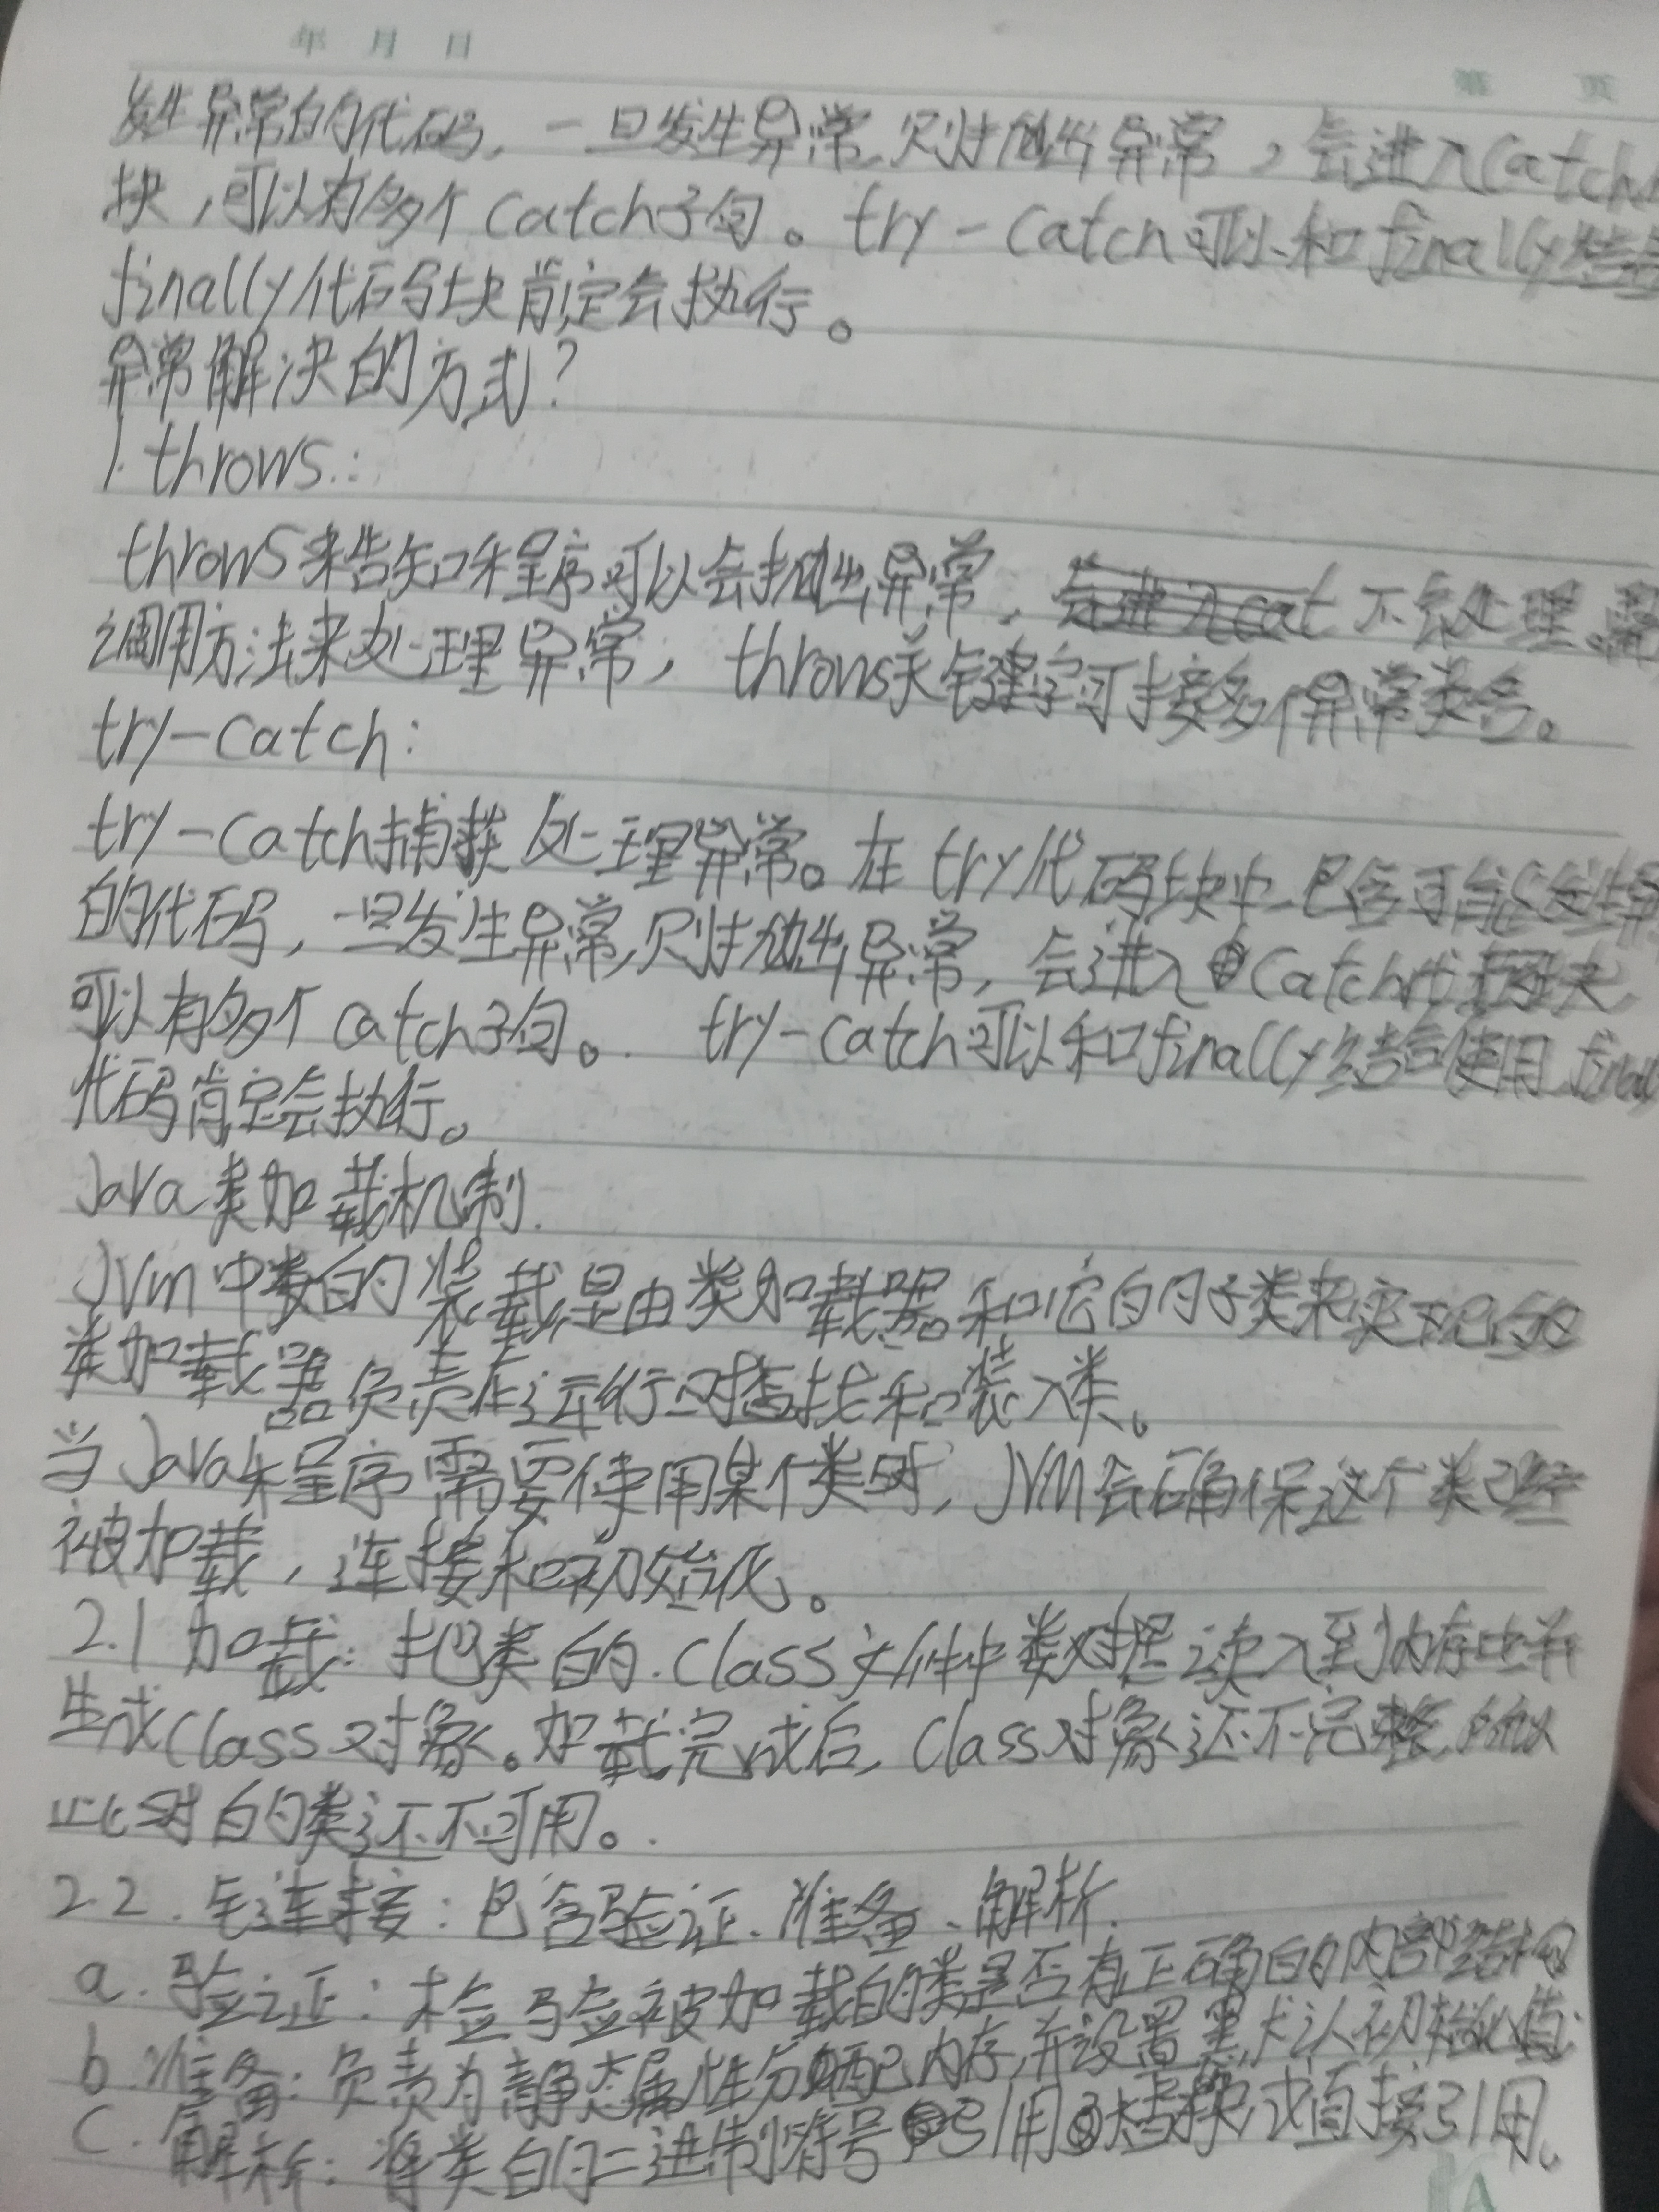 年 月 日
第 页
发生异常的代码,一旦发生异常,则抛出异常,会进入catch
块,可以有多个catch子句。try-catch可以和finally结合
finally代码块肯定会执行。
异常解决的方式?
1.throws:
throws来告知程序可以会抛出异常,会进入cat不会处理,需
调用方法来处理异常,throws关键字可接多个异常类名。
try-catch:
try-catch捕获处理异常。在try代码块中包含可能发生异
的代码,一旦发生异常,则抛出异常,会进入catch
可以有多个catch子句。try-catch可以和finally结合使用finall
代码肯定会执行。
Java类加载机制.
JVM中类的装载是由类加载器和它的子类来实现的
类加载器负责在运行时查找和装入类。
当Java程序需要使用某个类时,JVM会确保这个类已经
被加载,连接和初始化。
2.1加载:把类的.class文件中数据读入到内存中并
生成class对象。加载完成后,class对象还不完整,所以
此时的类还不可用。
2.2.连接:包含验证、准备、解析.
a.验证:检验被加载的类是否有正确的内部结构
b.准备:负责为静态属性分配内存,并设置默认初始值
c.解析:将类的二进制符号引用替换成直接引用。